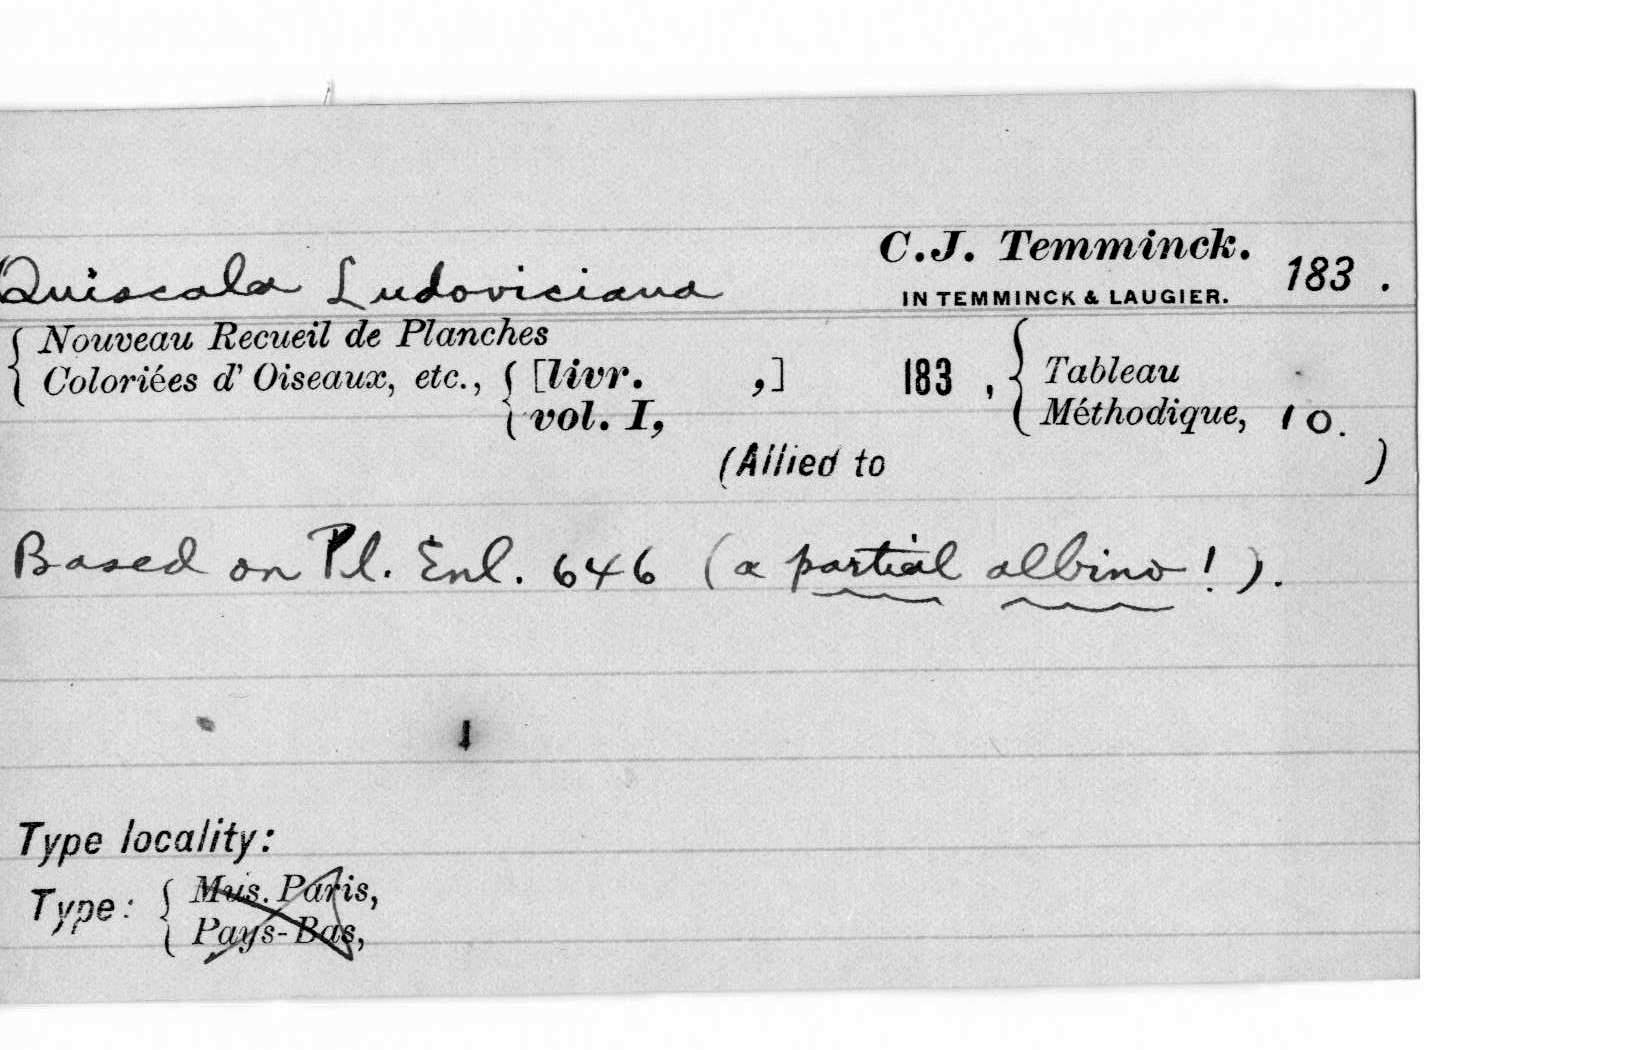 Quiscala Ludoviciana C.J. Temminck. 183 .
IN TEMMINCK & LAUGIER.
Nouveau Recueil de Planches
Coloriées d' Oiseaux, etc., [livr. ,] 183 , Tableau
vol. I, Méthodique, 10.
(Allied to )
Based on Pl. Enl. 646 (a partial albino!).
Type locality:
Type: Mus. Paris,
Pays-Bas,